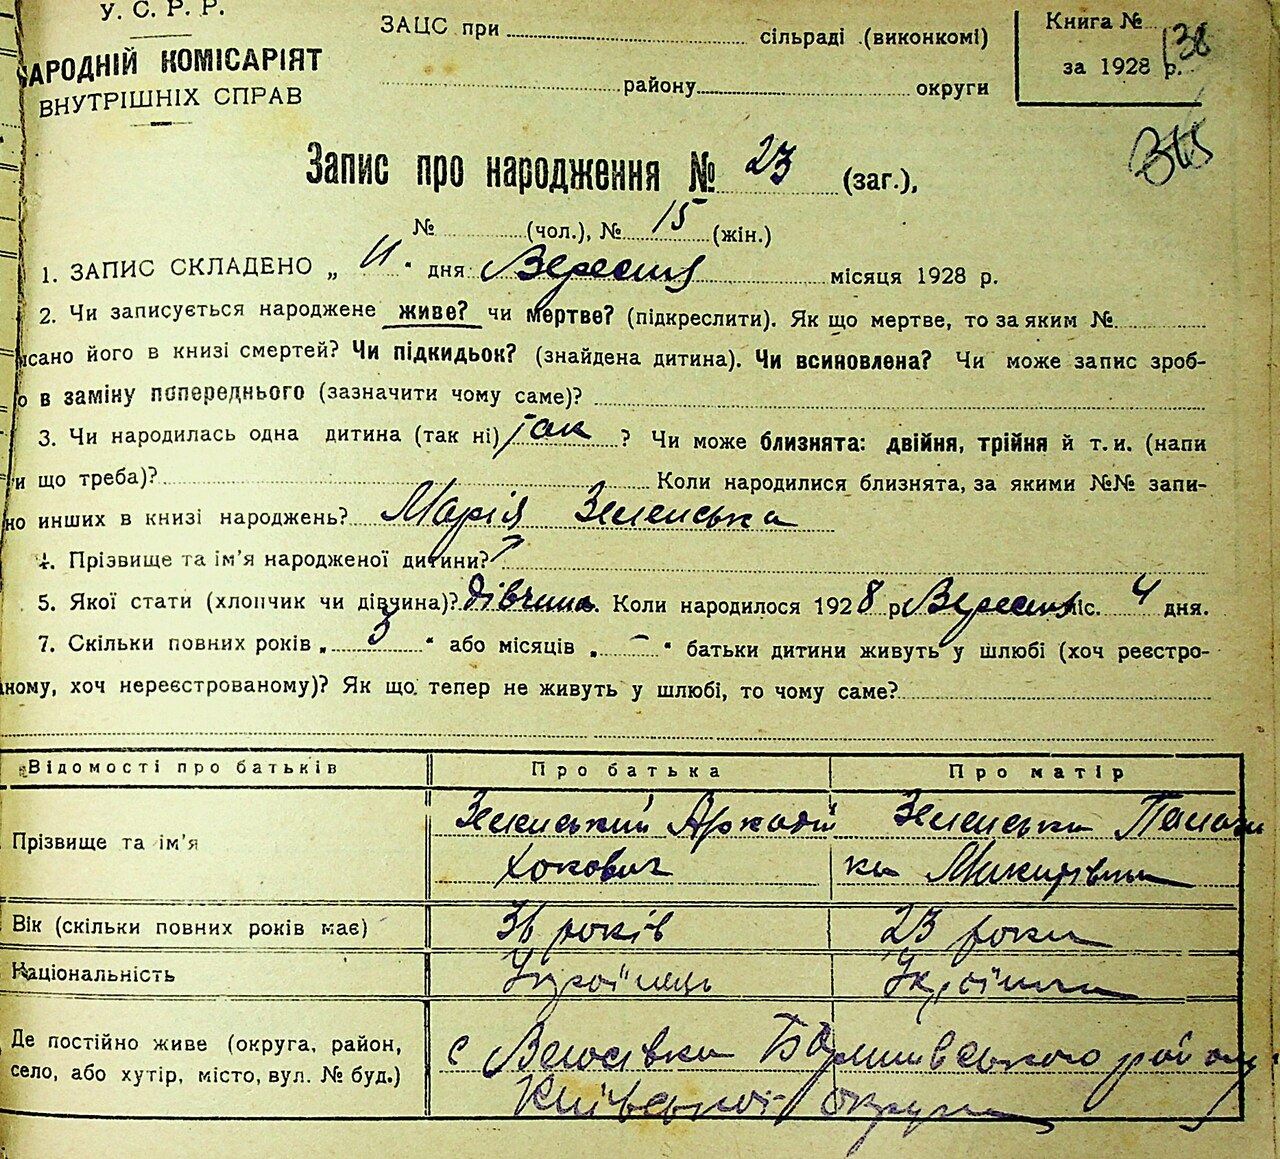 У. С. Р. Р.
НАРОДНІЙ КОМІСАРІЯТ
ВНУТРІШНІХ СПРАВ
ЗАЦС при сільраді (виконкомі)
району округи
Книга №
за 1928 р.
138
Запис про народження № 23 (заг.),
№ (чол.), № 15 (жін.)
1. ЗАПИС СКЛАДЕНО „ 11 " дня Вересня місяця 1928 р.
2. Чи записується народжене живе? чи мертве? (підкреслити). Як що мертве, то за яким №
исано його в книзі смертей? Чи підкидьок? (знайдена дитина). Чи всиновлена? Чи може запис зроб-
о в заміну попереднього (зазначити чому саме)?
3. Чи народилась одна дитина (так ні) так ? Чи може близнята: двійня, трійня й т. и. (напи
и що треба)? Коли народилися близнята, за якими №№ запи-
но инших в книзі народжень? Марія Зеленська
4. Прізвище та ім'я народженої дитини?
5. Якої стати (хлопчик чи дівчина)? дівчина. Коли народилося 1928 р Вересня міс. 4 дня.
7. Скільки повних років „ 3 " або місяців „ – " батьки дитини живуть у шлюбі (хоч реєстро-
ному, хоч нереєстрованому)? Як що тепер не живуть у шлюбі, то чому саме?
Відомості про батьків Про батька Про матір
Прізвище та ім'я Зеленський Аркадій Зеленська
Микитівна
Вік (скільки повних років має) 36 років 23 роки
Національність Українець Українка
Де постійно живе (округа, район, село, або хутір, місто, вул. № буд.) с району
Київської округи